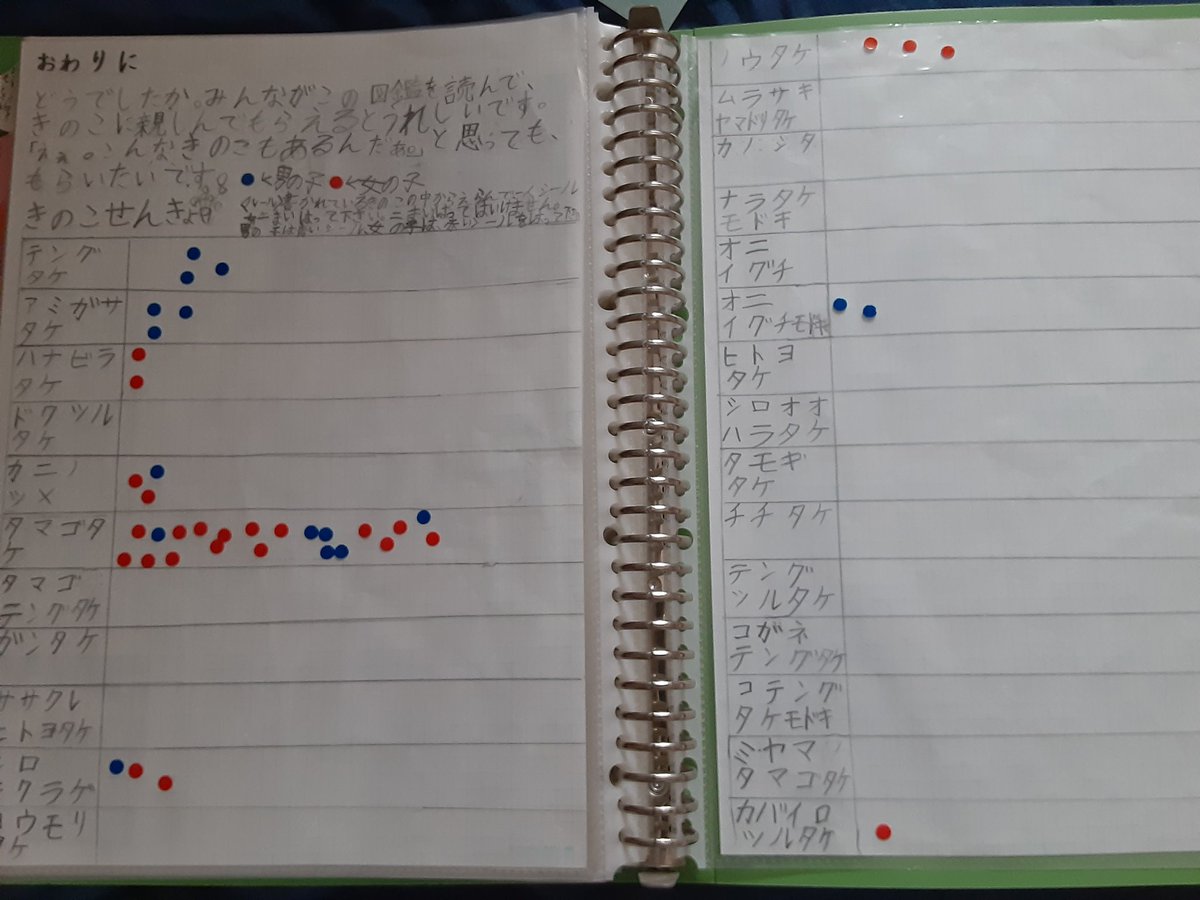 おわりに
どうでしたか。みんながこの図鑑を読んで、
きのこに親しんでもらえるとうれしいです。
「えぇ。こんなきのこもあるんだぁ。」と思っても、
もらいたいです。 ●<男の子 ●<女の子
きのこせんきょ
テング
タケ
アミガサ
タケ
ハナビラ
タケ
ドクツル
タケ
カニノ
ツメ
タマゴタ
ケ
タマゴ
テングタケ
ガンタケ
ササクレ
ヒトヨタケ
シロ
キクラゲ
コウモリ
タケ
ノウタケ
ムラサキ
ヤマドリタケ
カノシタ
ナラタケ
モドキ
オニ
イグチ
オニ
イグチモドキ
ヒトヨ
タケ
シロオオ
ハラタケ
タモギ
タケ
チチタケ
テング
ツルタケ
コガネ
テングタケ
コテング
タケモドキ
ミヤマ
タマゴタケ
カバイロ
ツルタケ